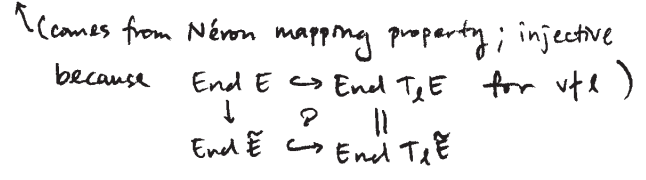 ↖(comes from Néron mapping property; injective
because End E ↪ End T_ℓ E for v∤ℓ )
↓ ↻ ||
End Ẽ ↪ End T_ℓ Ẽ